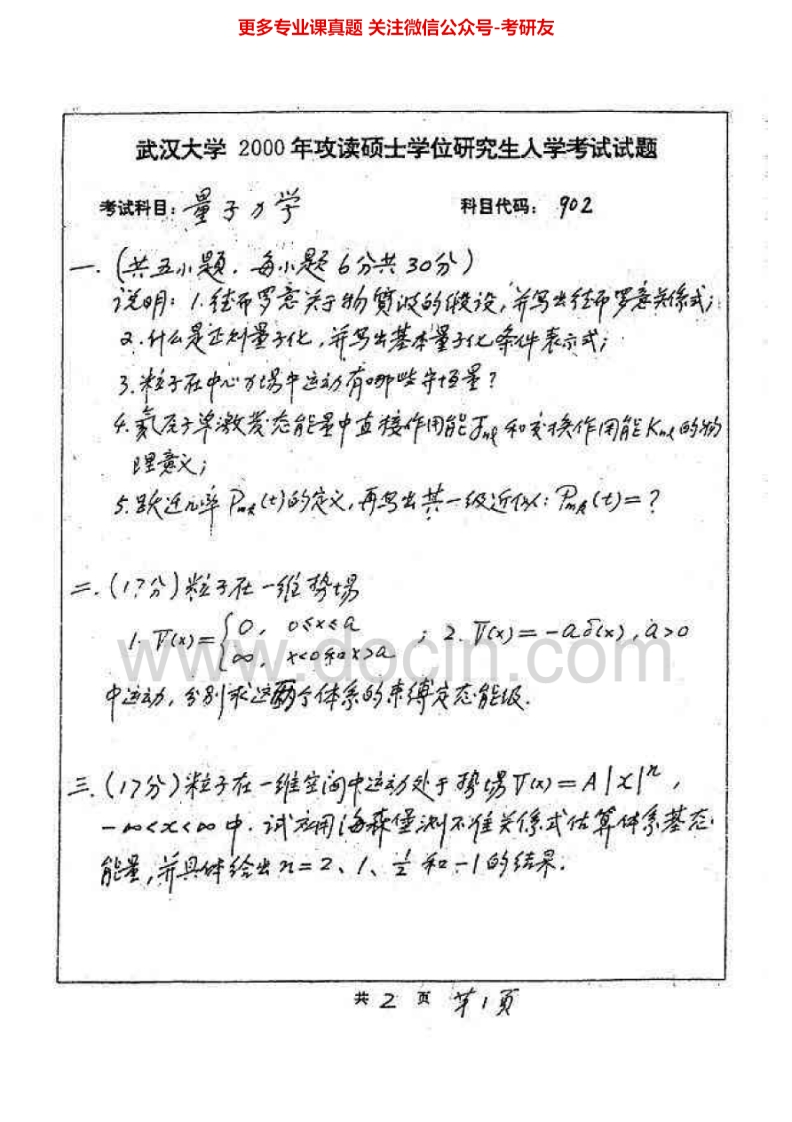 更多专业课真题 关注微信公众号-考研友
武汉大学 2000 年攻读硕士学位研究生入学考试试题
考试科目：量子力学 科目代码： 902
一. (共五小题. 每小题 6分共 30分)
说明：1. 德布罗意关于物质波的假设, 并写出德布罗意关系式；
2. 什么是正则量子化, 并写出基本量子化条件表示式；
3. 粒子在中心力场中运动有哪些守恒量？
4. 氦原子单激发态能量中直接作用能 Jnl 和交换作用能 Knl 的物
理意义；
5. 跃迁几率 Pmk(t)的定义, 再写出其一级近似： Pmk(t)=？
二. (17分) 粒子在一维势场
1. V(x)={0, 0≤x≤a ; 2. V(x)=-aδ(x), a>0
∞, x<0和x>a
www.docin.com
中运动, 分别求这两个体系的束缚定态能级.
三. (17分) 粒子在一维空间中运动处于势场 V(x)=A|x|ⁿ,
-∞<x<∞ 中. 试应用海森堡测不准关系式估算体系基态
能量, 并具体给出 n=2、1、½ 和 -1 的结果.
共 2 页 第1页